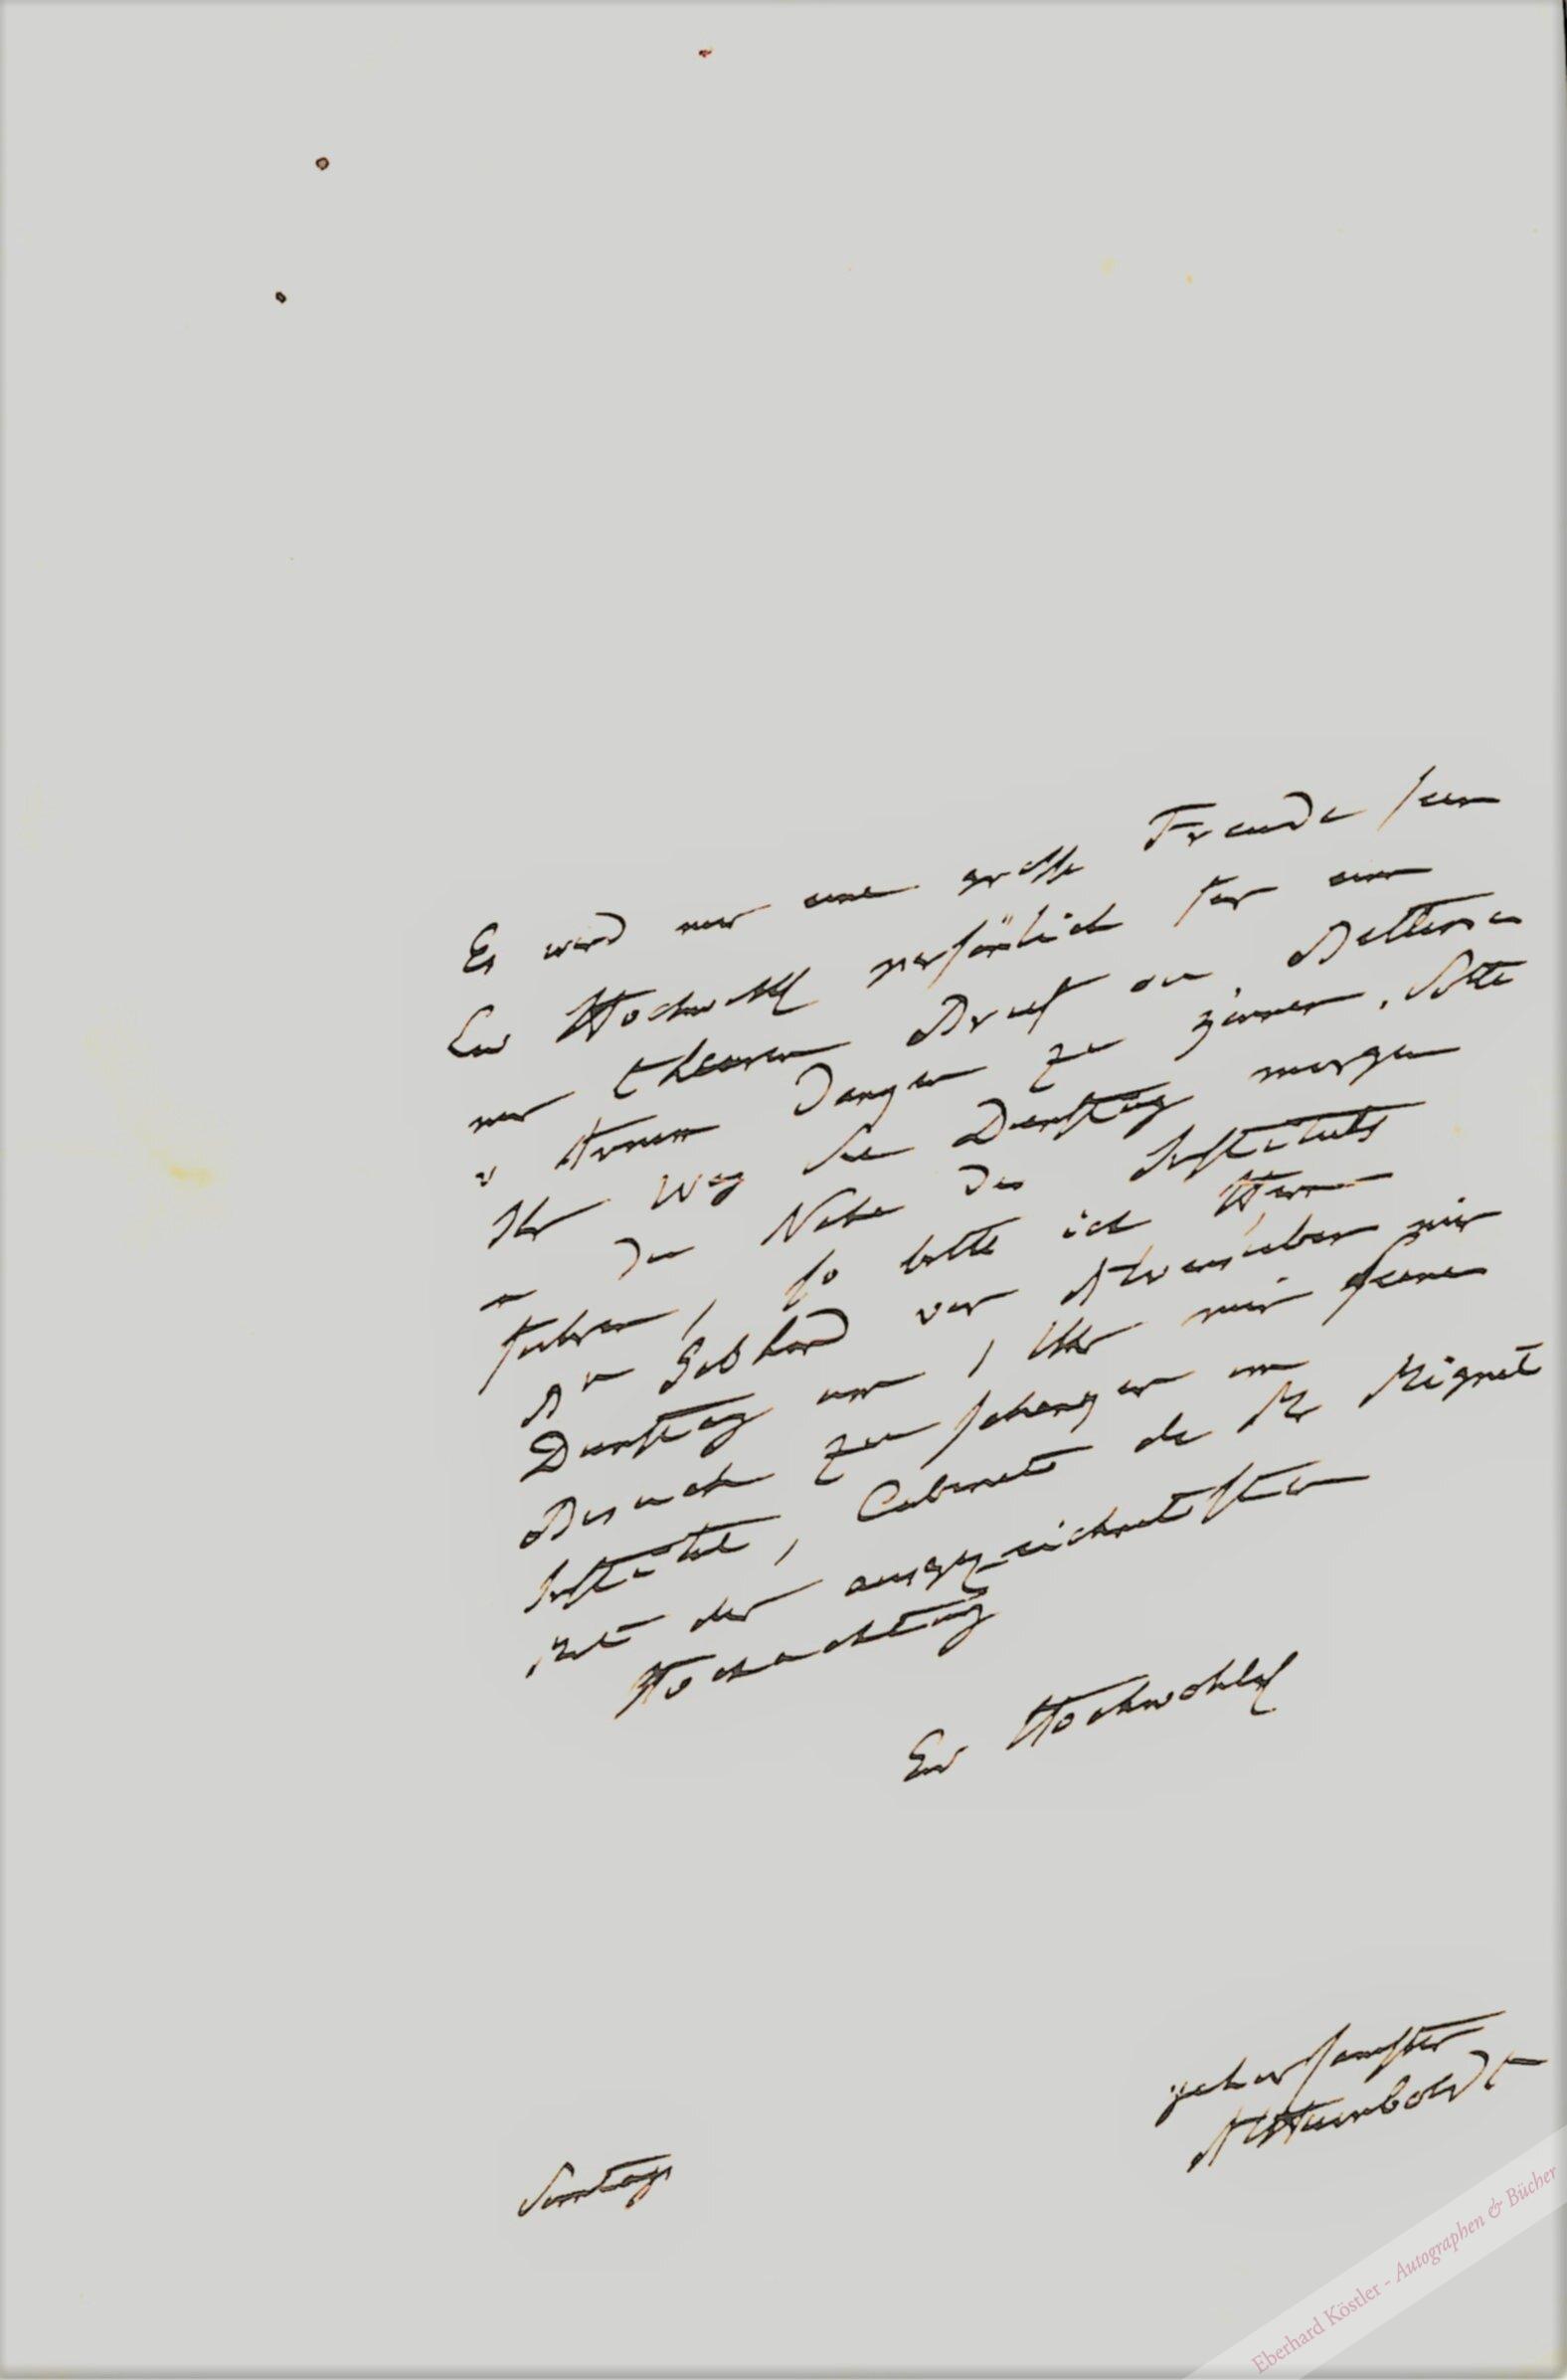 Es wird mir eine grosse Freude sein
Ew Hochwohl persönlich für einen
mir theuren Brief von Bettina
v Arnim danken zu können. Sollte
Ihr Weg Sie Dienstag morgen
in die Nähe des Instituts
führen, so bitte ich Herrn
Dr Gebhard vor Abends
Dienstag um 1 Uhr mir seinen
Besuch zu schenken im
Institut, Cabinet de Mr Mignet
Mit der ausgezeichnetsten
Hochachtung
Ew Hochwohlg
gehorsamster
AlHumboldt
Sontags
Eberhard Köstler - Autographen & Bücher